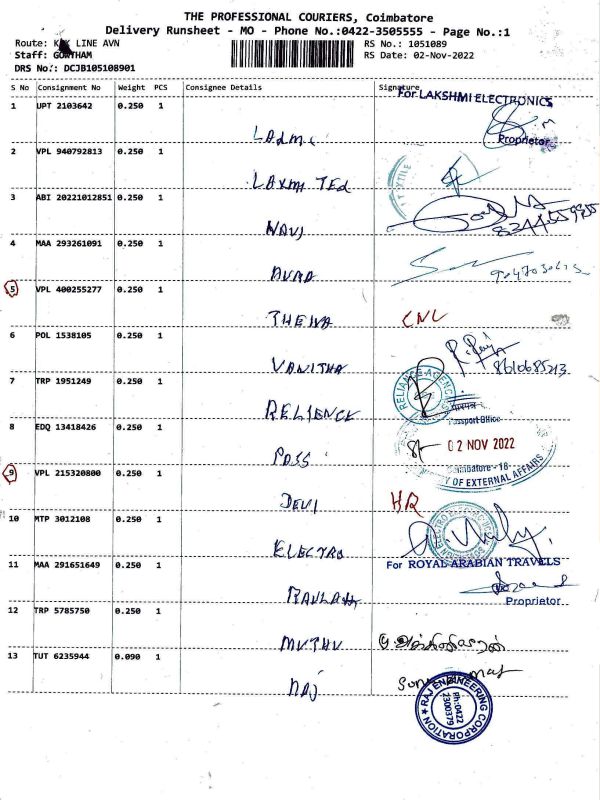 THE PROFESSIONAL COURIERS, Coimbatore
Delivery Runsheet - MO - Phone No.:0422-3505555 - Page No.:1
Route: LINE AVN RS No.: 1051089
Staff: RS Date: 02-Nov-2022
DRS No.: DCJB105108901
S No Consignment No Weight PCS Consignee Details Signature
For LAKSHMI ELECTRONICS
1 UPT 2103642 0.250 1
Proprietor
2 VPL 940792813 0.250 1
LAXMI TEX
3 ABI 20221012851 0.250 1
NAVJ
4 MAA 293261091 0.250 1
5 VPL 400255277 0.250 1
CNL
6 POL 1538105 0.250 1
VANITHA 8610685213
7 TRP 1951249 0.250 1
RELIANCE AGENCIES
RELIENCE
8 EDQ 13418426 0.250 1
Passport Office
02 NOV 2022
PASS
Coimbatore - 18
OF EXTERNAL AFFAIRS
9 VPL 215320800 0.250 1
DEVI
10 MTP 3012108 0.250 1
ELECTRO
11 MAA 291651649 0.250 1
For ROYAL ARABIAN TRAVELS
Proprietor
12 TRP 5785750 0.250 1
MUTHU
13 TUT 6235944 0.090 1
RAJ
RAJ ENGINEERING CORPORATION
Ph:0422
2300379